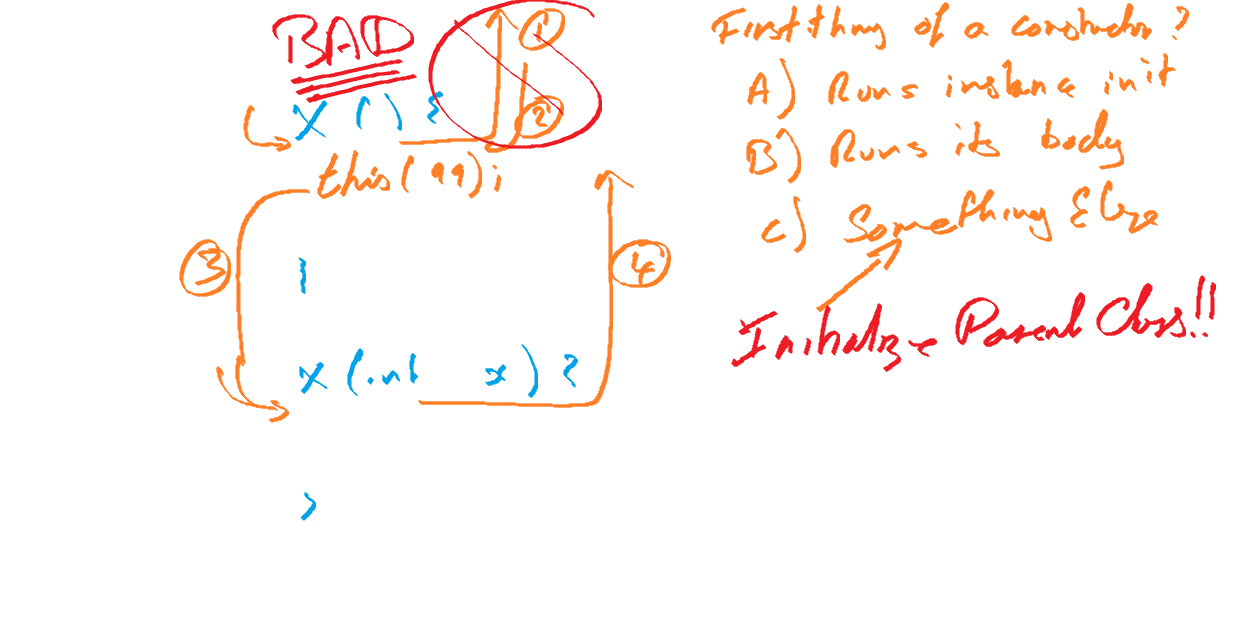 BAD
① 
X () {
②
this(99);
③
}
④
X (int x) {
}
First thing of a constructor?
A) Runs instance init
B) Runs its body
C) Something Else
Initialize Parent Class!!